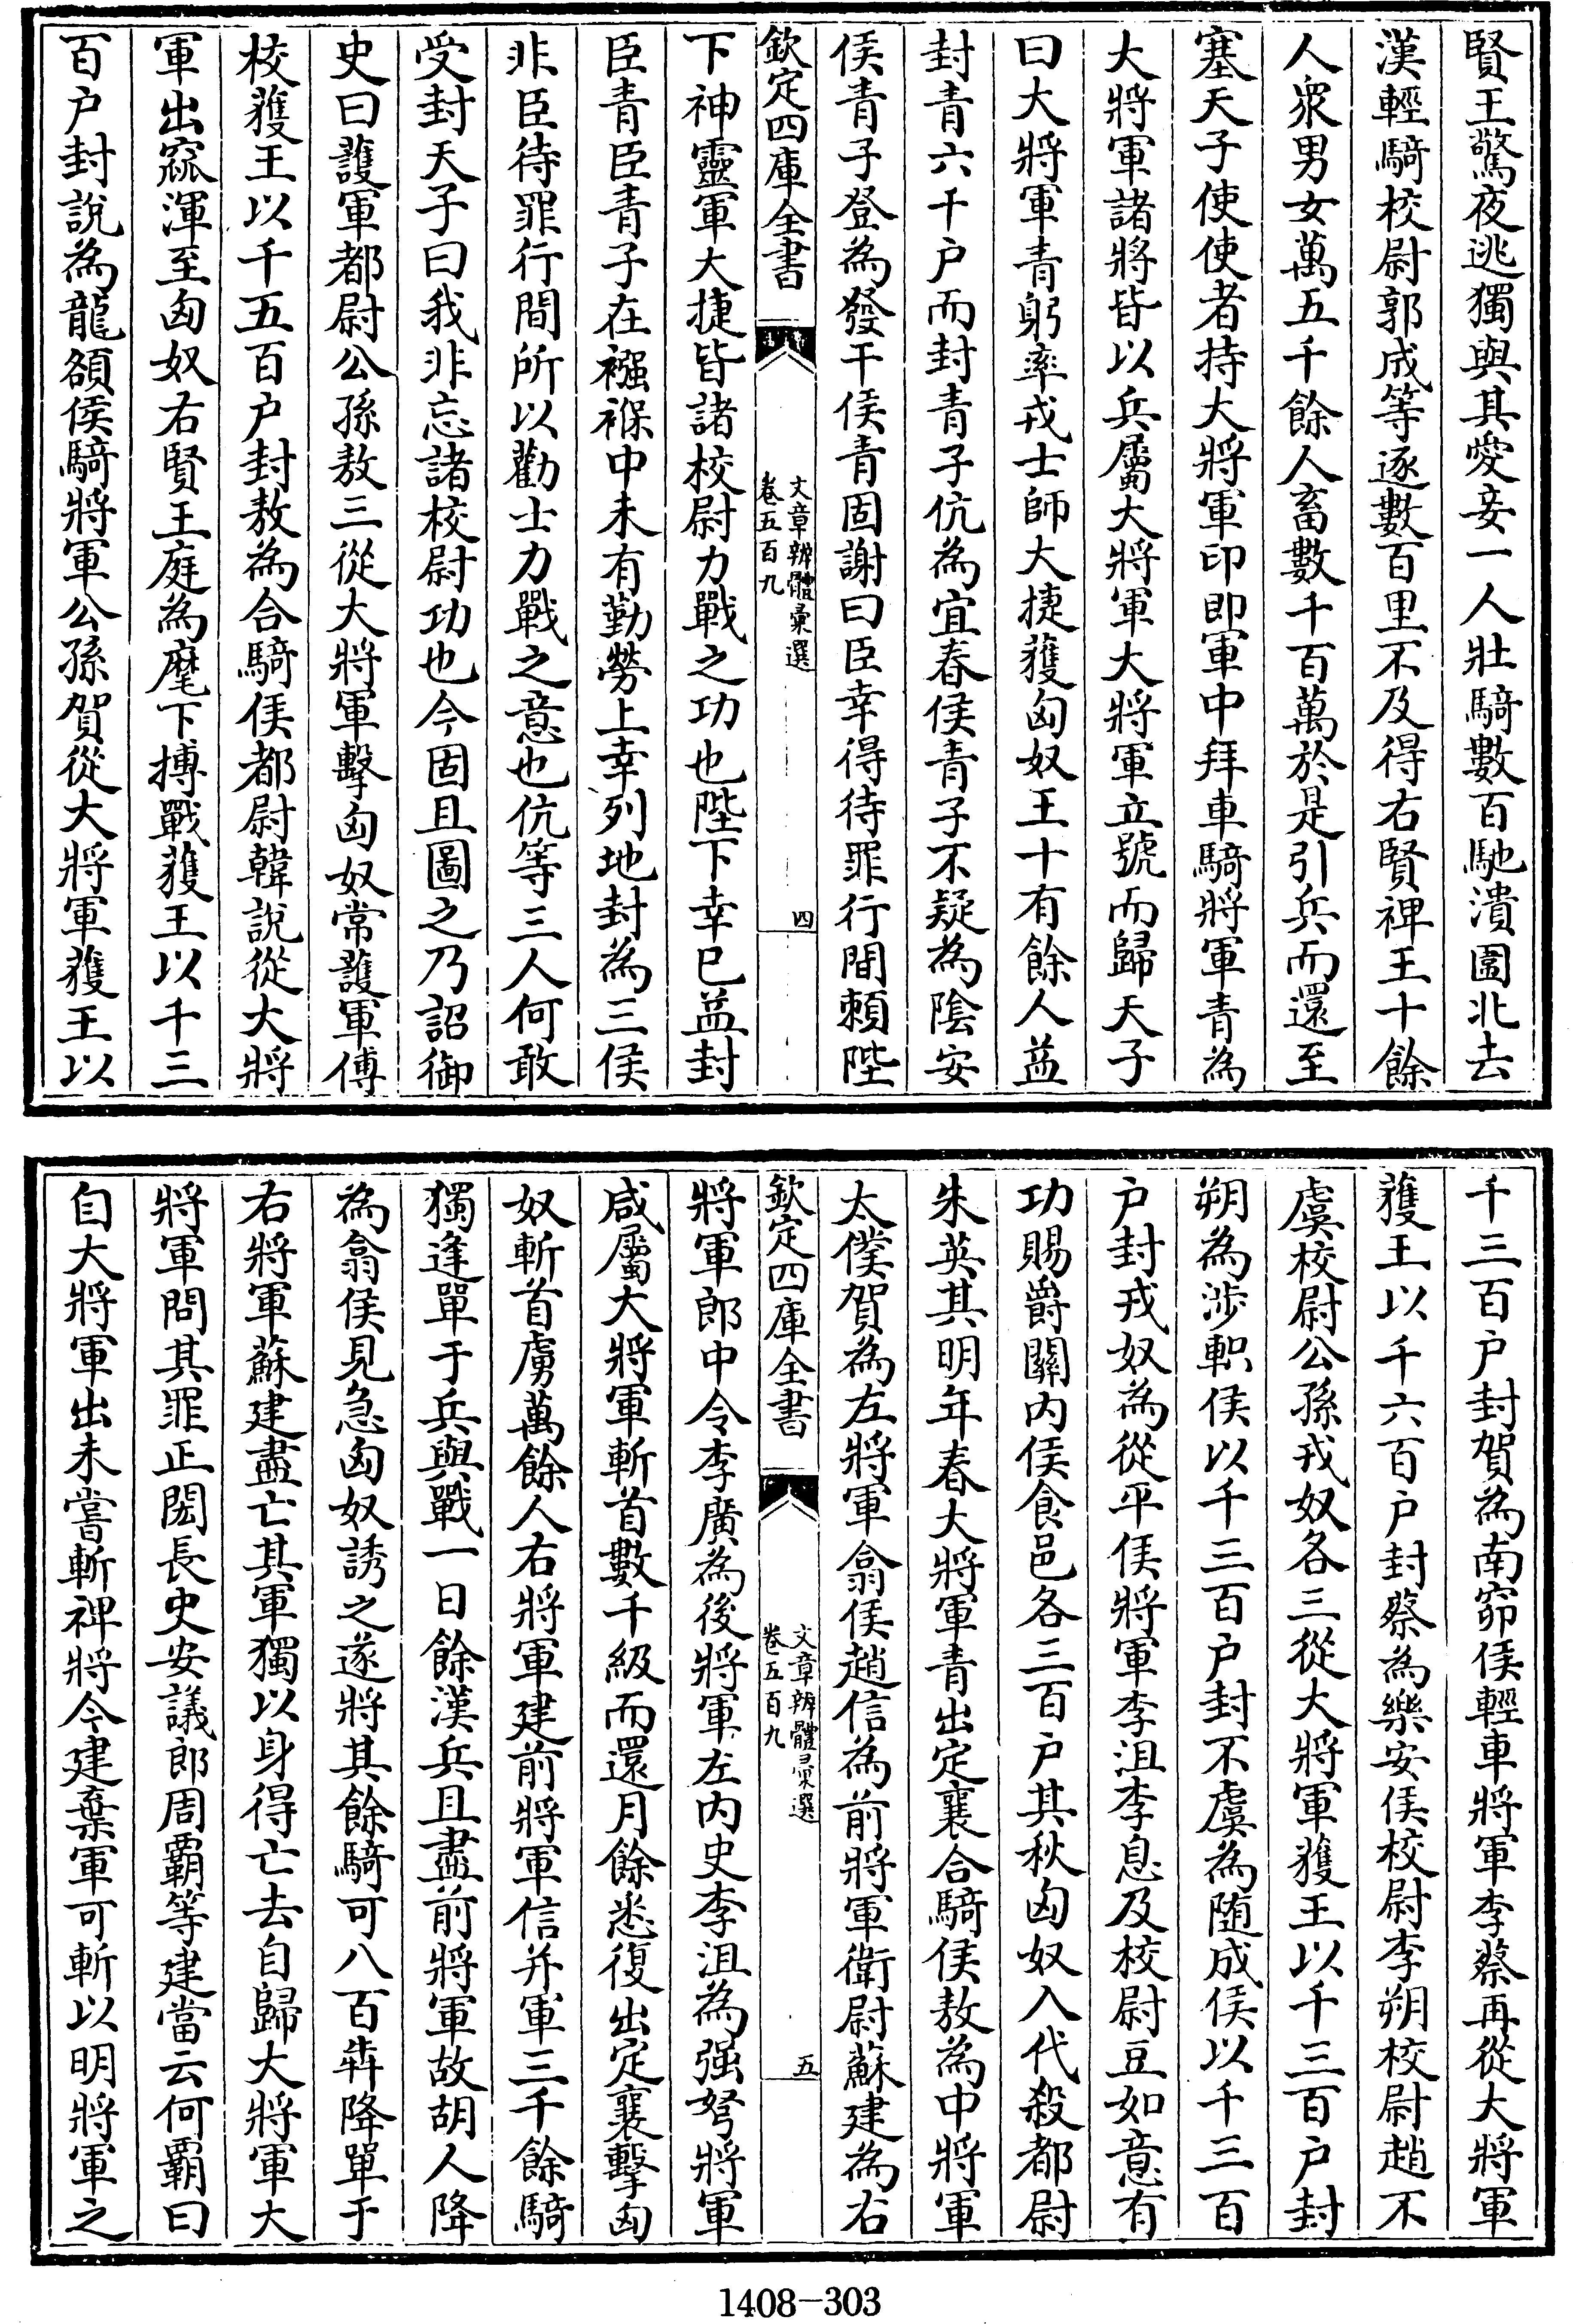 賢王驚夜逃獨與其愛妾一人壯騎數百馳潰圍北去
漢輕騎校尉郭成等逐數百里不及得右賢裨王十餘
人衆男女萬五千餘人畜數千百萬於是引兵而還至
塞天子使使者持大將軍印即軍中拜車騎將軍青為
大將軍諸將皆以兵屬大將軍大將軍立號而歸天子
曰大將軍青躬率戎士師大捷獲匈奴王十有餘人益
封青六千户而封青子伉為宜春侯青子不疑為陰安
侯青子登為發干侯青固謝曰臣幸得待罪行間賴陛
欽定四庫全書
文章辨體彙選
卷五百九
四
下神靈軍大捷皆諸校尉力戰之功也陛下幸已益封
臣青臣青子在襁褓中未有勤勞上幸列地封為三侯
非臣待罪行間所以勸士力戰之意也伉等三人何敢
受封天子曰我非忘諸校尉功也今固且圖之乃詔御
史曰護軍都尉公孫敖三從大將軍擊匈奴常護軍傅
校獲王以千五百户封敖為合騎侯都尉韓説從大將
軍出窳渾至匈奴右賢王庭為麾下搏戰獲王以千三
百户封説為龍頟侯騎將軍公孫賀從大將軍獲王以
千三百户封賀為南窌侯輕車將軍李蔡再從大將軍
獲王以千六百户封蔡為樂安侯校尉李朔校尉趙不
虞校尉公孫戎奴各三從大將軍獲王以千三百户封
朔為涉軹侯以千三百户封不虞為隨成侯以千三百
户封戎奴為從平侯將軍李沮李息及校尉豆如意有
功賜爵關内侯食邑各三百户其秋匈奴入代殺都尉
朱英其明年春大將軍青出定襄合騎侯敖為中將軍
太僕賀為左將軍翕侯趙信為前將軍衛尉蘇建為右
欽定四庫全書
文章辨體彙選
卷五百九
五
將軍郎中令李廣為後將軍左内史李沮為强弩將軍
咸屬大將軍斬首數千級而還月餘悉復出定襄擊匈
奴斬首虜萬餘人右將軍建前將軍信并軍三千餘騎
獨逢單于兵與戰一日餘漢兵且盡前將軍故胡人降
為翕侯見急匈奴誘之遂將其餘騎可八百犇降單于
右將軍蘇建盡亡其軍獨以身得亡去自歸大將軍大
將軍問其罪正閎長史安議郎周霸等建當云何霸曰
自大將軍出未嘗斬裨將今建棄軍可斬以明將軍之
1408-303